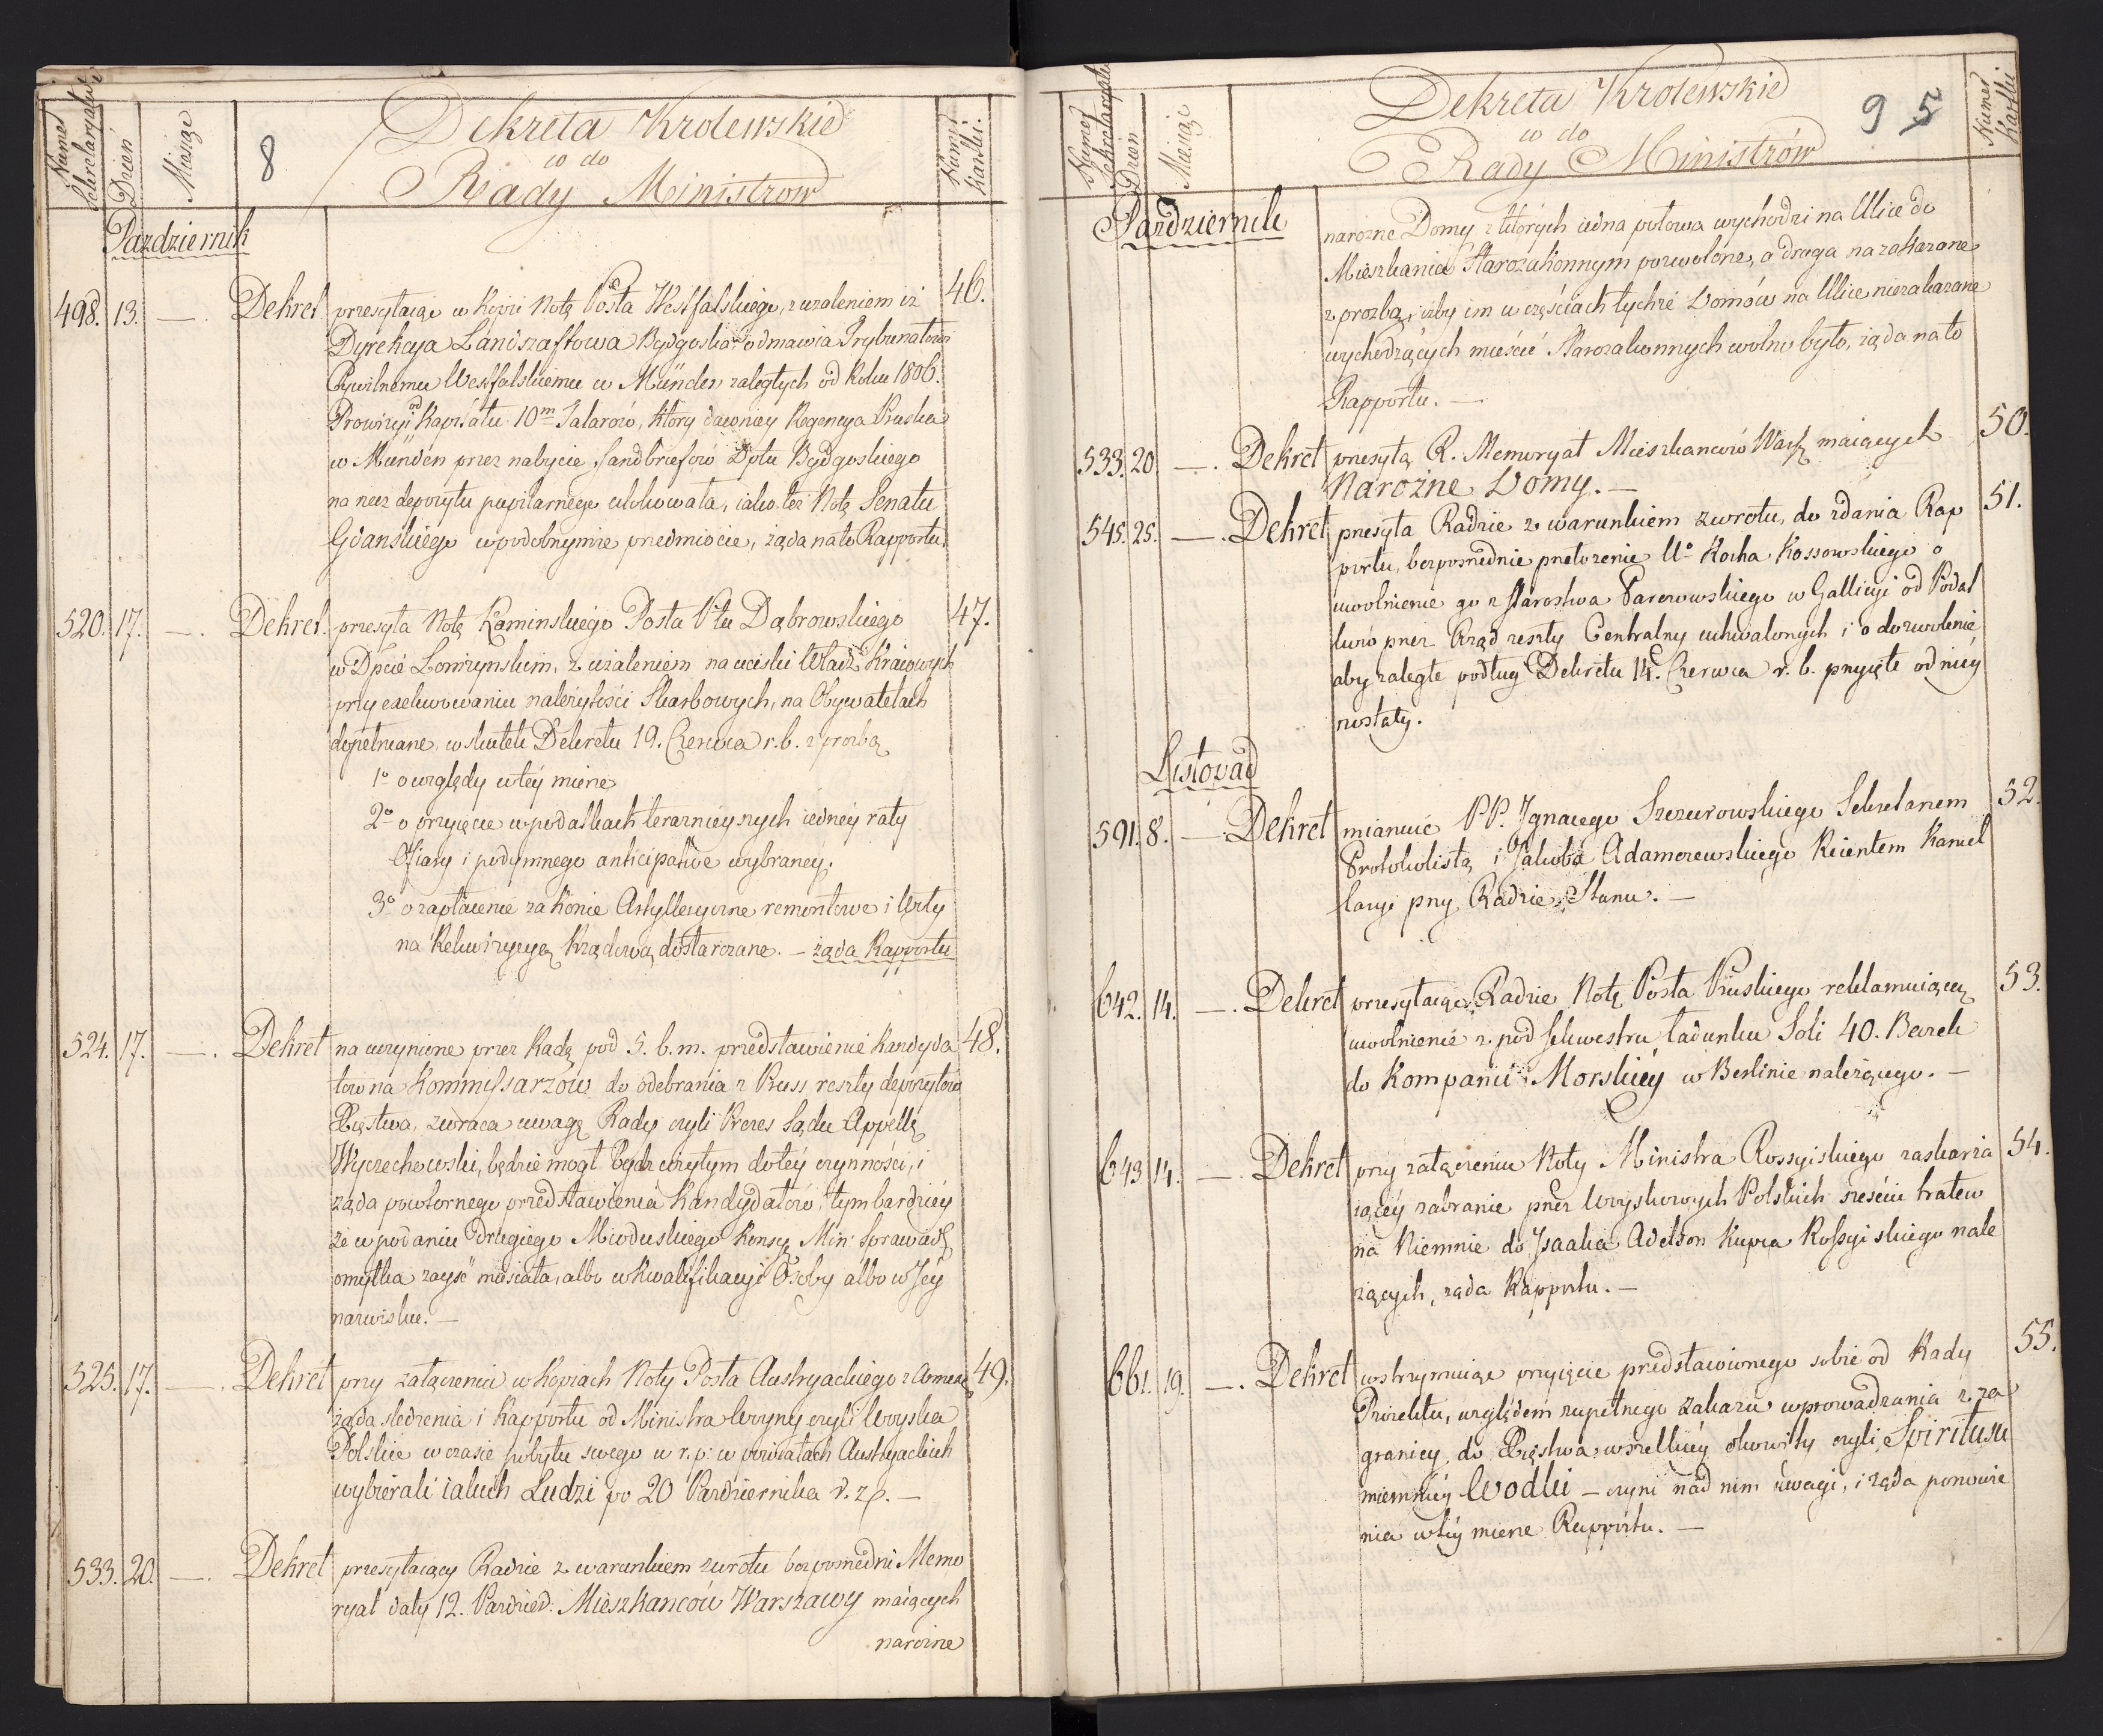 Numer Sekretaryatu
Dzień
Miesiąc
8
Dekreta Krolewskie
w do
Rady Ministrow
Numer Kartki.
Pazdziernik
498. 13. —. Dekret przesyłaiąc w kopii Notę Posła Westfalskiego, z użaleniem iż 46.
Dyrekcya Landszaftowa Bydgoska odmawia Trybunałowi
Cywilnemu Westfalskiemu w Münden zaległych od Roku 1806.
Prowizyi od Kapitału 10m Talarów, który dawniey Regencya Pruska
w Münden przez nabycie Fandbriefów Dptu Bydgoskiego
na rzecz depozytu pupilarnego ulokowała, iako też Notę Senatu
Gdanskiego w podobnymże przedmiocie, żąda na to Rapportu.
520. 17. —. Dekret. przesyła Notę Kaminskiego Posła Ptu Dąbrowskiego 47.
w Dpcie Łomżynskim, z użaleniem na uciski Władz Kraiowych
przy exekwowaniu należytości Skarbowych, na Obywatelach
dopełniane, w skutek Dekretu 19. Czerwca r. b. z prozbą
1o o względy w tey mierze
2o o przyięcie w podatkach teraznieyszych iedney raty
Ofiary i podymnego anticipative wybraney;
3o o zapłacenie za Konie Artylleryczne remontowe i
na Rekwizycyą Rządową dostarczane. — żąda Rapportu
524. 17. —. Dekret na uczynione przez Radę pod 5. b. m. przedstawienie Kandyda 48.
tow na Kommissarzów do odebrania z Pruss reszty depozytów
Xięstwa, zwraca uwagę Rady czyli Prezes Sądu Appellę
Wyczechowski, będzie mogł bydz użytym do tey czynności, i
żąda powtornego przedstawienia Kandydatów, tym bardziey
że w podaniu drugiego Mioduskiego Min: Sprawied
omyłka zayść musiała, albo w kwalifikacyi Osoby albo w Jey
nazwisku. —
525. 17. —. Dekret przy załączeniu w Kopiach Noty Posła Austryackiego z 49.
żąda sledzenia i Rapportu od Ministra Woyny czyli Woyska
Polskie w czasie pobytu swego w r. p: w powiatach Austryackich
wybierali iakich Ludzi po 20 Pazdziernika r. z. —
533. 20. —. Dekret przesyłaiący Radzie z warunkiem zwrotu bezposredni Memo
ryał daty 12. Pazdzier: Mieszkancow Warszawy maiących
narożne
Numer Sekretaryatu
Dzień
Miesiąc
Dekreta Krolewskie
w do
Rady Ministrów
9 5
Numer Kartki
Pazdziernik
narozne Domy z których iedna połowa wychodzi na Ulice do
Mieszkania Starozakonnym pozwolone, a druga na zakazane
z prozbą, iżby im w częściach tychże Domów na Ulice niezakazane
wychodzących mieścić Starozakonnych wolno było, żąda na to
Rapportu. —
533. 20. —. Dekret przesyłą R. Memoryał Mieszkanców Warsz maiących 50.
Narożne Domy. —
545. 25. —. Dekret przesyła Radzie z warunkiem zwrotu, do zdania Rap 51.
portu, bezposrednie przełożenie Uo Rocha Kossowskiego o
uwolnienie go z Starostwa Parczowskiego w Gallicyi od Podat
ków przez Rząd reszty Centralny uchwalonych i o dozwolenie
aby zaległe podług Dekretu 14. Czerwca r. b. przyięte od niey
zostały.
Listopad
591. 8. —. Dekret mianuie PP. Jgnacego Szczurowskiego Sekretarzem 52.
Protokolistą i Jakuba Adamczewskiego Reientem Kancel
laryi przy Radzie Stanu. —
642. 14. —. Dekret przesyłaiąc Radzie Notę Posła Pruskiego reklamuiącą 53.
uwolnienie z pod sekwestru ładunku Soli 40. Beczek
do Kompanii Morskiey w Berlinie należącego. —
643 14. —. Dekret przy załączeniu Noty Ministra Rossyiskiego zaskarża 54.
iącey zabranie przez Woyskowych Polskich sześciu tratew
na Niemnie do Jsaaka Adelson Kupca Rossyiskiego nale
żących, żąda Rapportu. —
661. 19. —. Dekret wstrzymuiąc przyięcie przedstawionego sobie od Rady 55.
Proiektu, względem zupełnego zakazu wprowadzania z za
granicy do Xięstwa wszelkiey okowity czyli Spiritusu
niemniey Wodki — czyni nad nim uwagi, i żąda ponowie
nia w tey mierze Rapportu. —